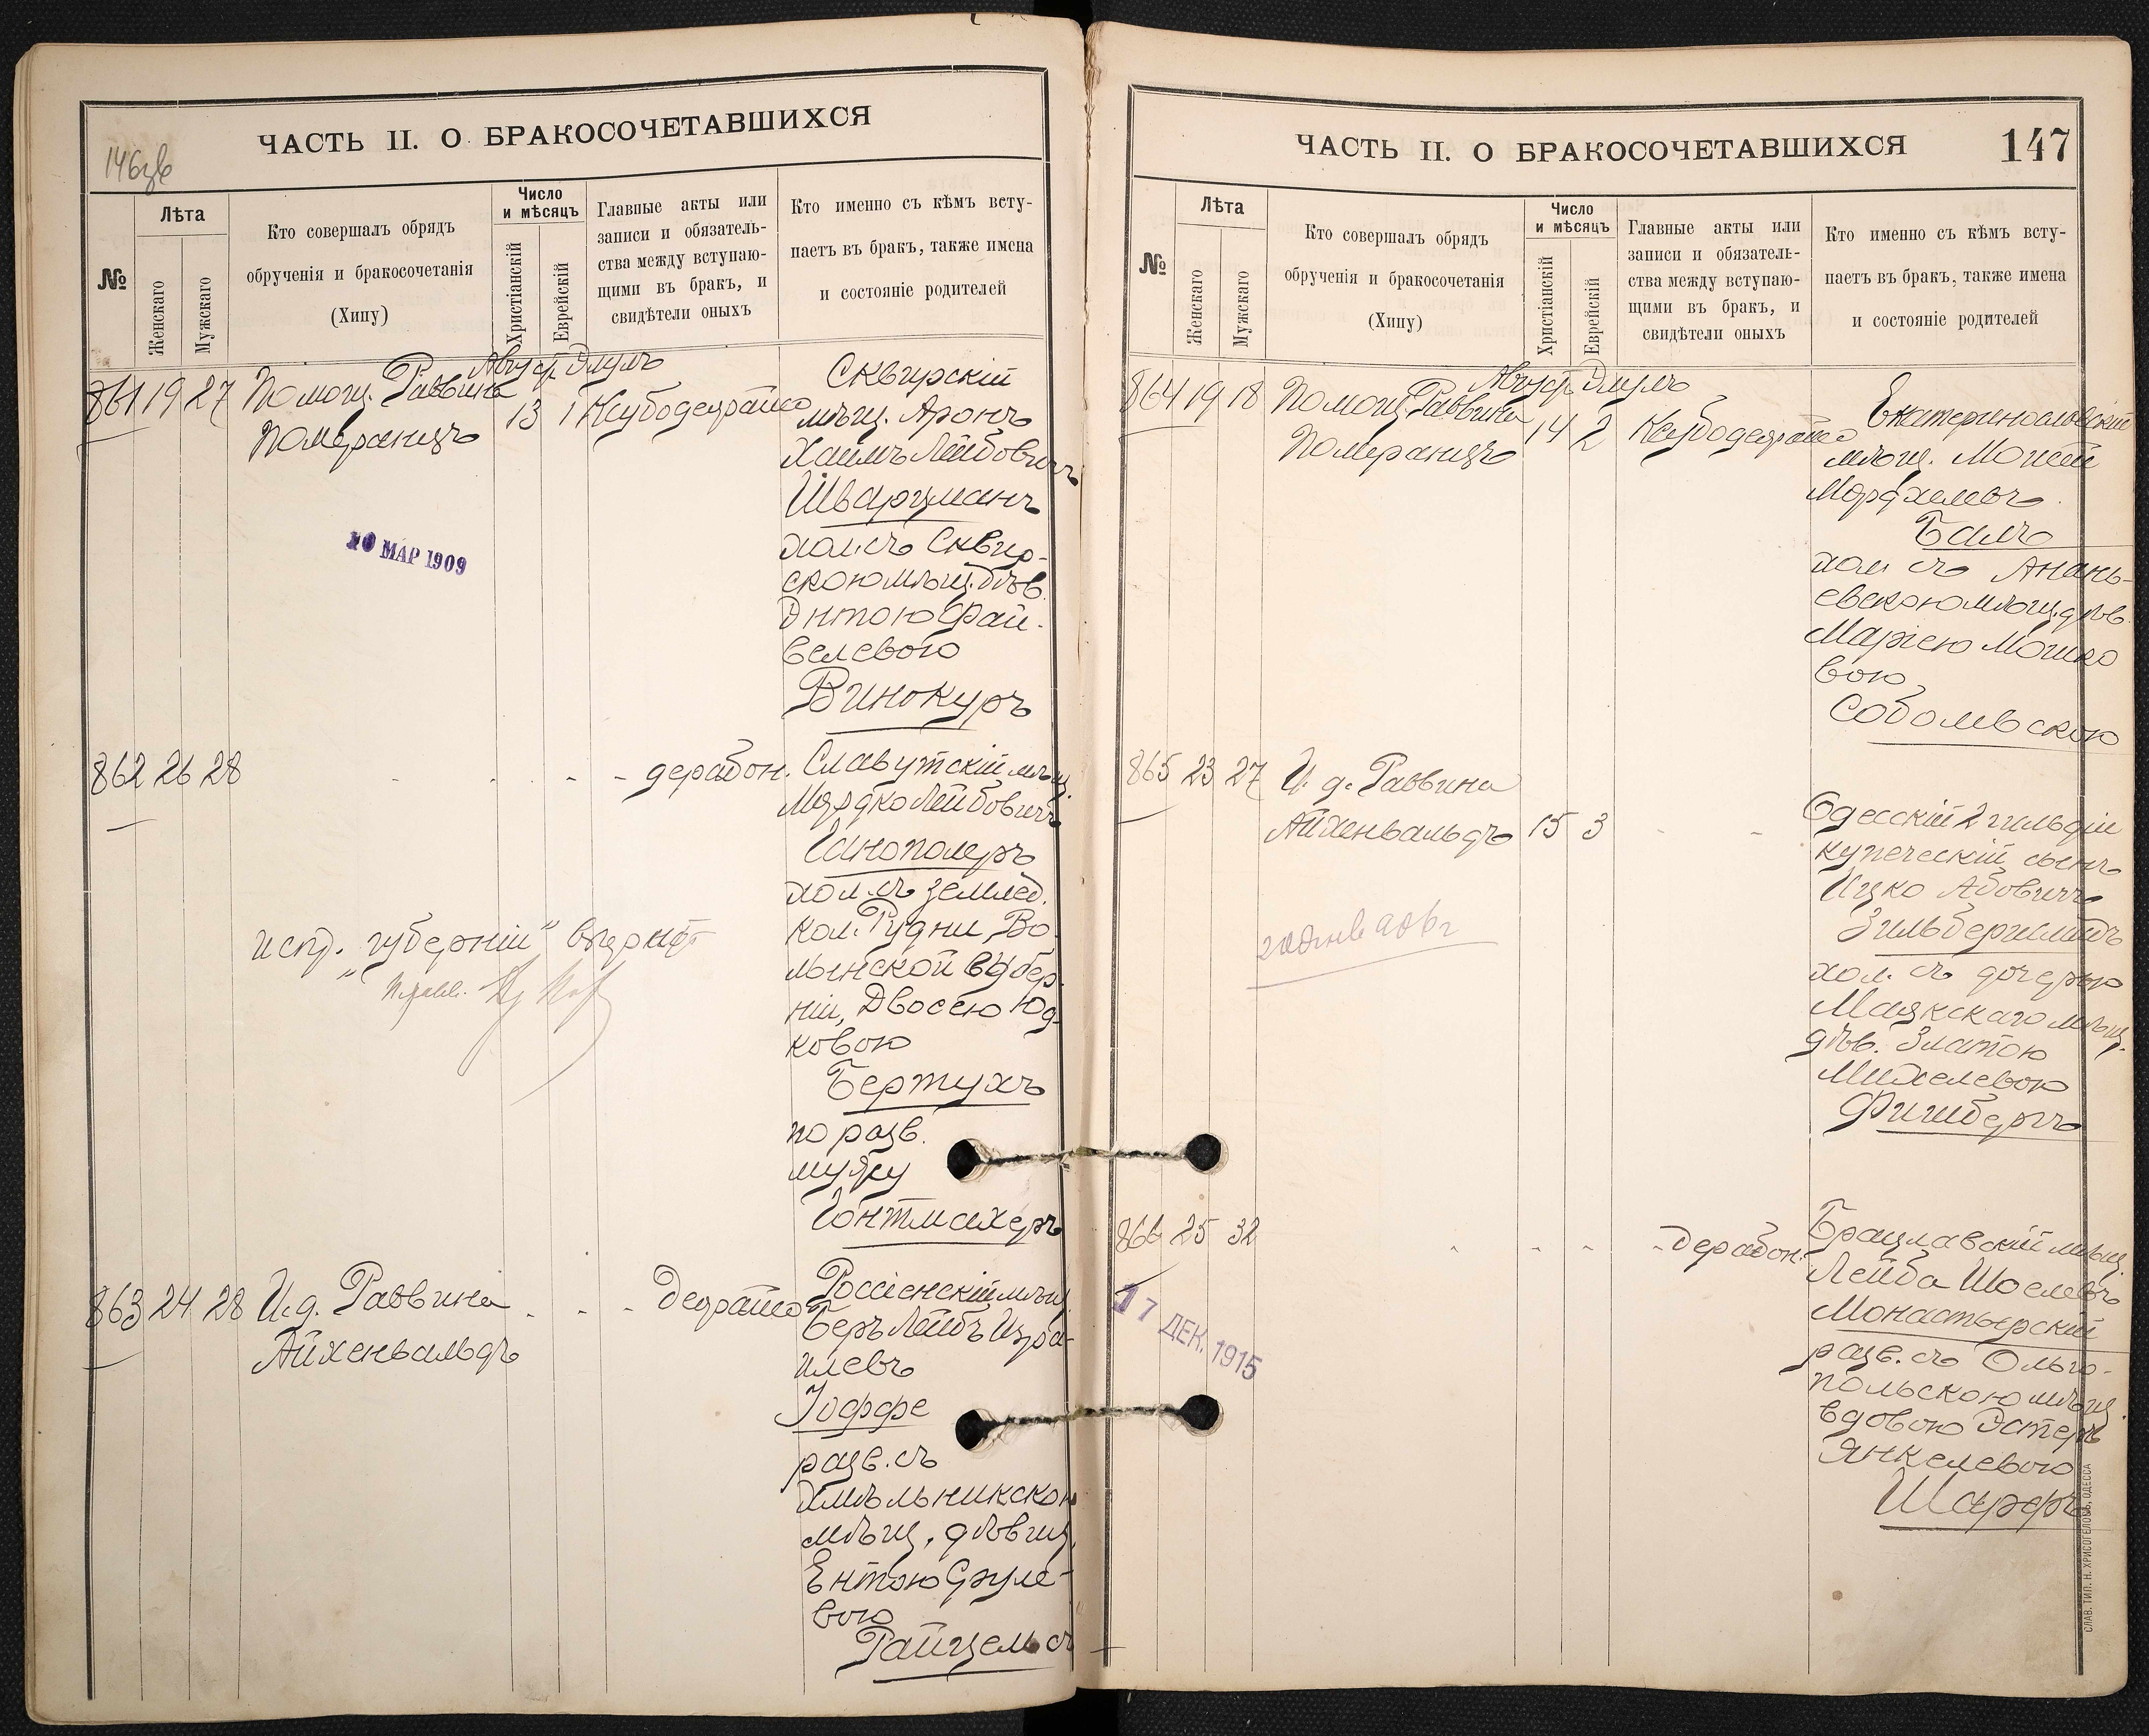 ЧАСТЬ II. О БРАКОСОЧЕТАВШИХСЯ
146
№
Лѣта
Женскаго
Мужскаго
Кто совершалъ обрядъ
обрученія и бракосочетанія
(Хипу)
Число
и мѣсяцъ
Христіанскій
Еврейскій
Главные акты или
записи и обязатель-
ства между вступаю-
щими въ бракъ, и
свидѣтели оныхъ
Кто именно съ кѣмъ всту-
паетъ въ бракъ, также имена
и состояніе родителей
861 19 27
Помощ. Раввина
Померанцъ
Август. Элулъ
13 1
Сквирскій
мѣщ. Аронъ
Хаимъ Лейбовичъ
Шварцманъ
хол. съ Сквир-
скою мѣщ. дѣв.
Энтою Фай-
велевою
Винокуръ
10 МАР 1909
862 26 28
- - - -
Славутскій мѣщ.
Мордко Лейбовичъ
Ганополеръ
хол. съ землед.
кол. Рудни, Во-
лынской губер-
ніи, Двосею Юд-
ковою
Бертухъ
по разв.
мужу
Гонтмахеръ
испр. "губерніи"
863 24 28
И.д. Раввина
Айхенвальдъ
- - -
Россіенскій мѣщ.
Беръ Лейбъ Изра-
илевъ
Іоффе
разв. съ
Хмѣльникскою
мѣщ. дѣвиц.
Ентою Сруле-
вою
Райцельсъ
ЧАСТЬ II. О БРАКОСОЧЕТАВШИХСЯ
147
№
Лѣта
Женскаго
Мужскаго
Кто совершалъ обрядъ
обрученія и бракосочетанія
(Хипу)
Число
и мѣсяцъ
Христіанскій
Еврейскій
Главные акты или
записи и обязатель-
ства между вступаю-
щими въ бракъ, и
свидѣтели оныхъ
Кто именно съ кѣмъ всту-
паетъ въ бракъ, также имена
и состояніе родителей
864 19 18
Помощ. Раввина
Померанцъ
Август. Элулъ
14 2
Екатеринославскій
мѣщ. Моисей
Мордхелевъ
Балъ
хол. съ Анань-
евскою мѣщ. дѣв.
Маріею Мошко
вою
Соболевскою
865 23 27
И. д. Раввина
Айхенвальдъ
15 3
- -
Одесскій 2 гильдіи
купеческій сынъ
Ицко Абовичъ
Зильбершмидъ
хол. съ дочерью
Маякскаго мѣщ.
дѣв. Златою
Михелевою
Фишбергъ
866 25 32
- - - -
Брацлавскій мѣщ.
Лейба Шоелевъ
Монастырскій
разв. съ Ольго-
польскою мѣщ.
вдовою Эстеръ
Янкелевою
Шарфъ
17 ДЕК. 1915
СЛАВ. ТИП. Н. ХРИСОГЕЛОСЪ, ОДЕССА